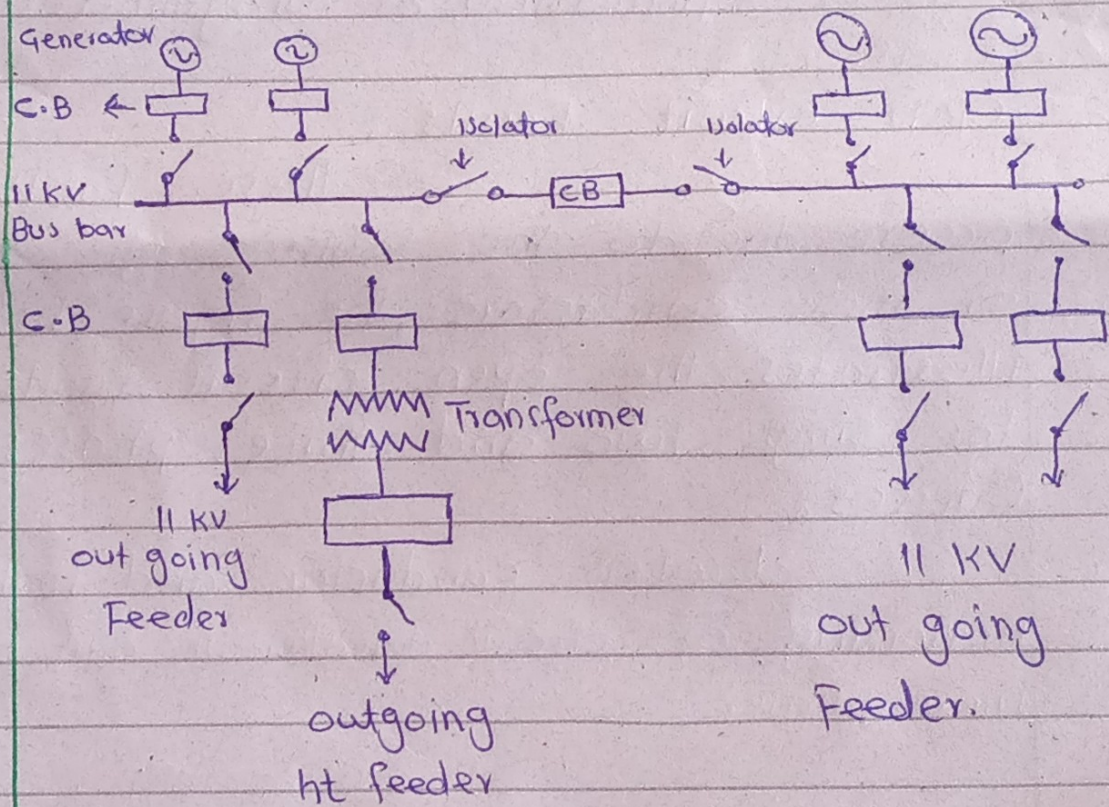 Generator
C.B
Isolator
Isolator
11 KV
Bus bar
CB
C.B
Transformer
11 KV
out going
Feeder
11 KV
out going
Feeder.
outgoing
ht feeder